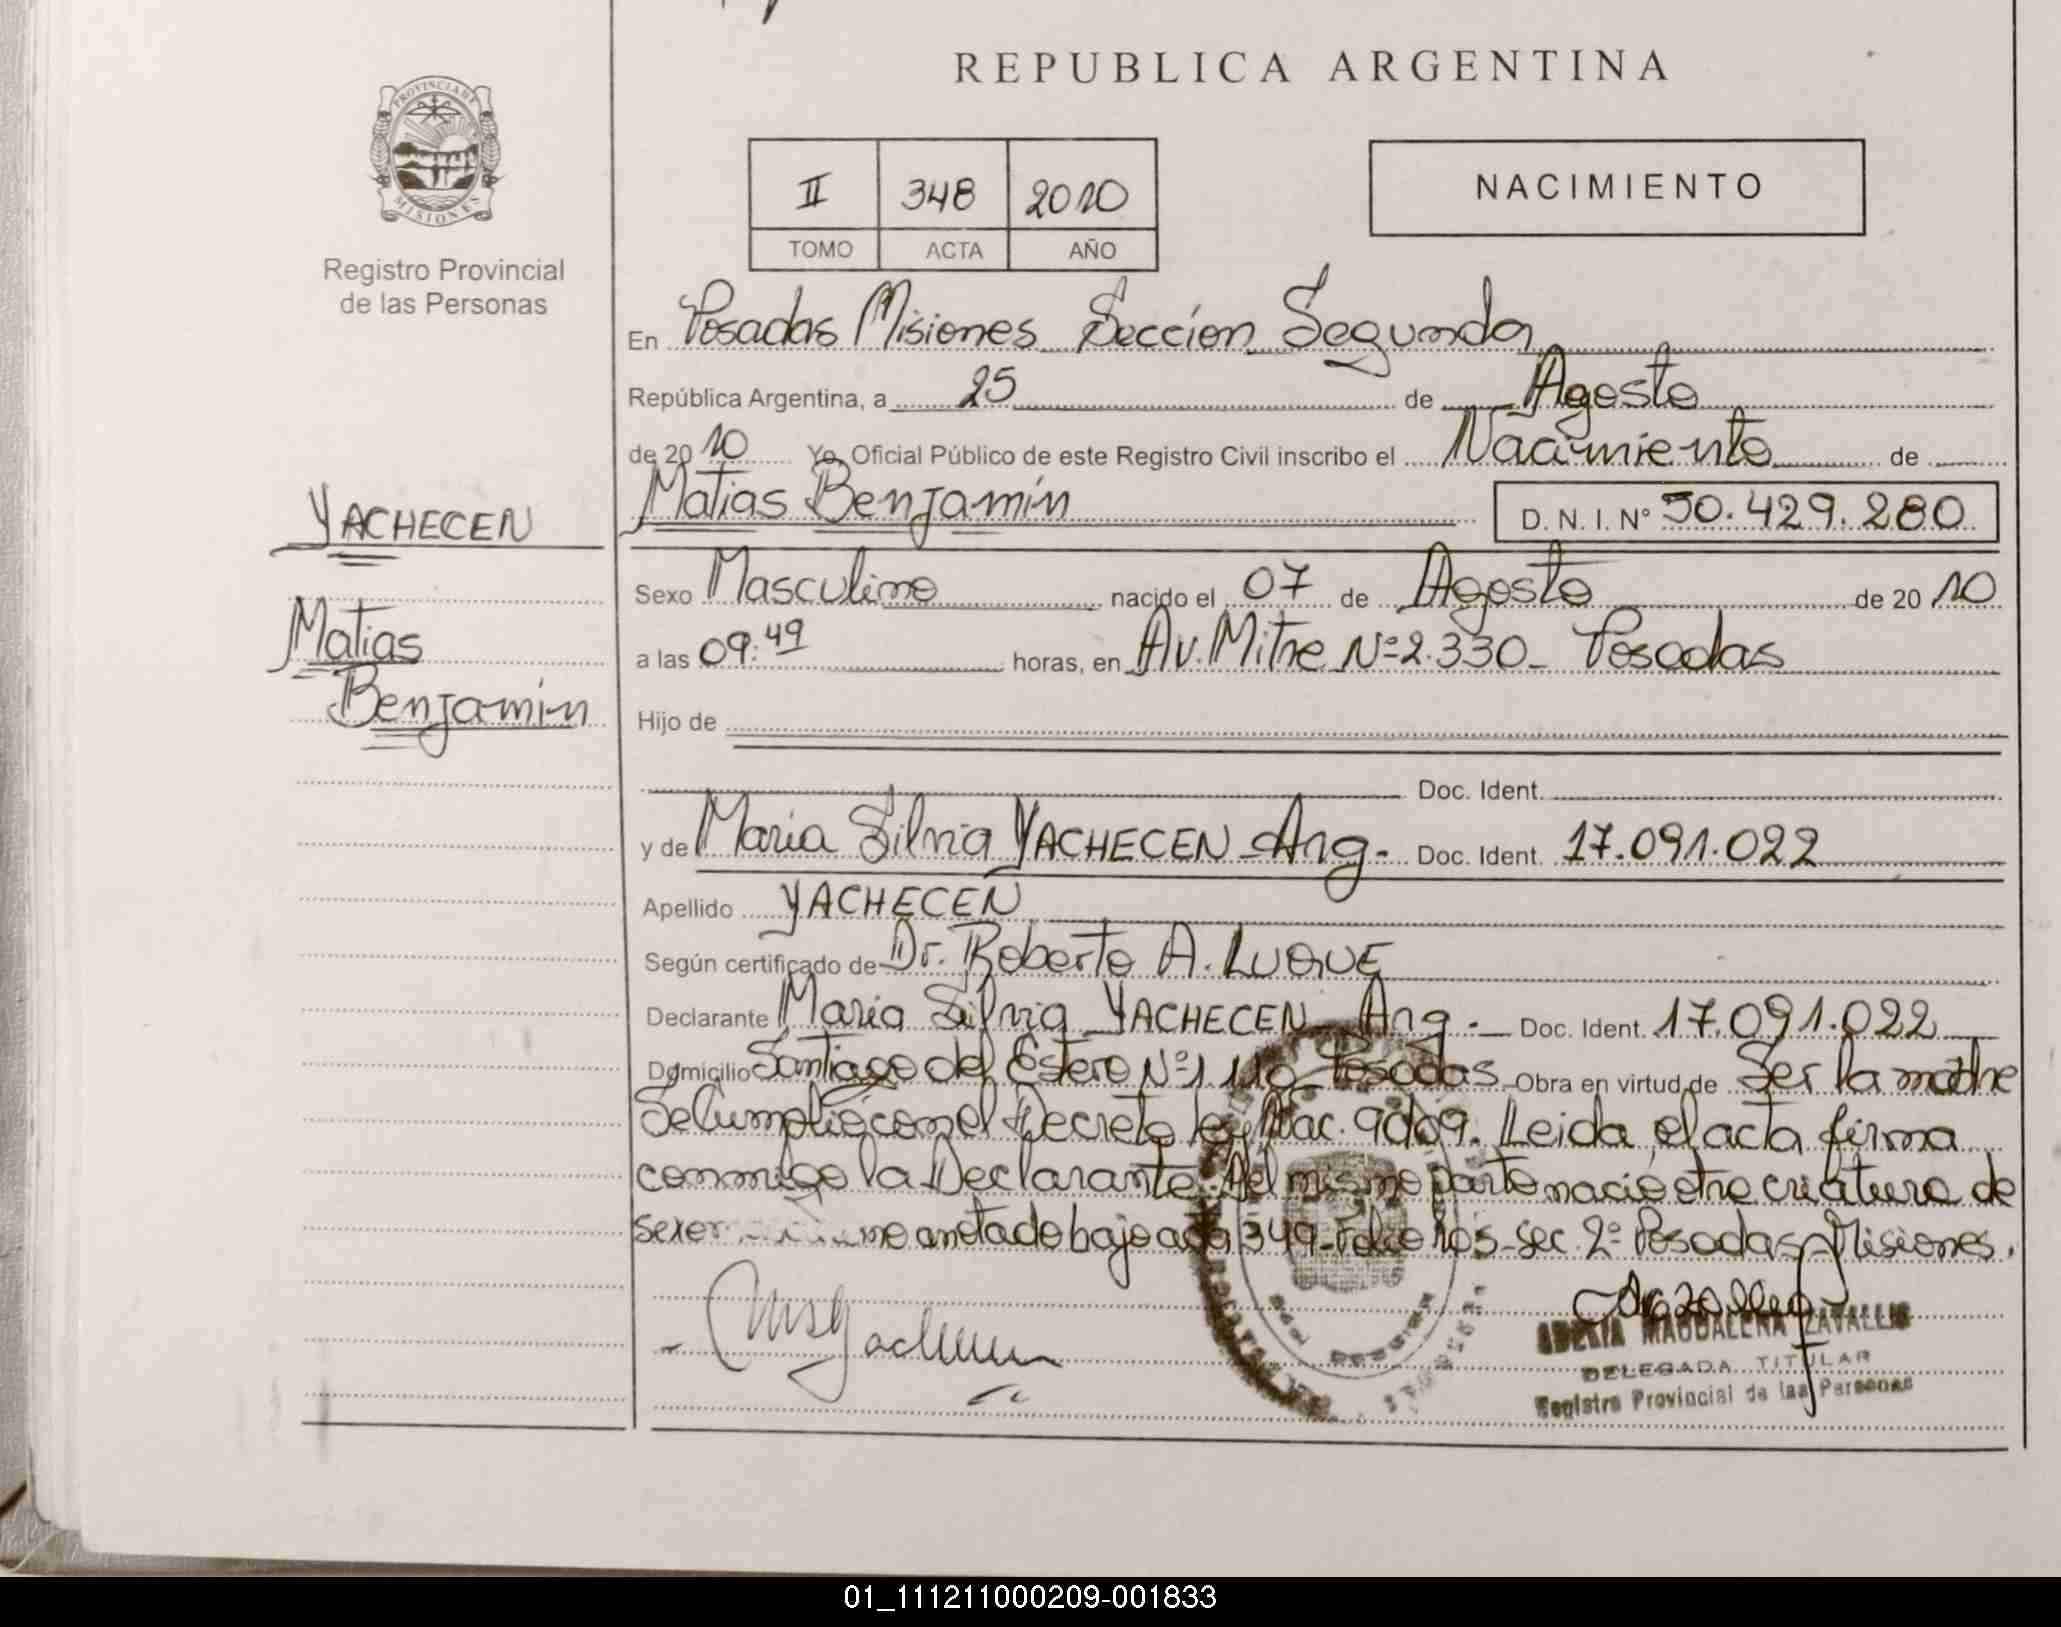 REPUBLICA ARGENTINA
PROVINCIA DE
MISIONES
Registro Provincial
de las Personas
II 348 2010
TOMO ACTA AÑO
NACIMIENTO
En Posadas Misiones Sección Segunda
República Argentina, a 25 de Agosto
de 2010 Yo, Oficial Público de este Registro Civil inscribo el Nacimiento de
YACHECEN
Matias Benjamín
D. N. I. Nº 50.429.280
Sexo Masculino nacido el 07 de Agosto de 2010
Matias
a las 09:49 horas, en Av. Mitre Nº 2.330 - Posadas
Benjamín
Hijo de
Doc. Ident.
y de Maria Silvia YACHECEN - Arg. - Doc. Ident. 17.091.022
Apellido YACHECEN
Según certificado de Dr. Roberto A. LUQUE
Declarante Maria Silvia YACHECEN - Arg. - Doc. Ident. 17.091.022
Domicilio Santiago del Estero Nº 1.110 - Posadas Obra en virtud de Ser la madre
Se Cumplió con el Decreto ley Nac. Leida el acta firma
conmigo la Declarante. Del mismo parto nació otra criatura de
sexo anotado bajo acta 349 - Folio 105 - Sec. 2º Posadas - Misiones.
MAGDALENA ZAVALLO
DELEGADA TITULAR
Registro Provincial de las Personas
01_111211000209-001833